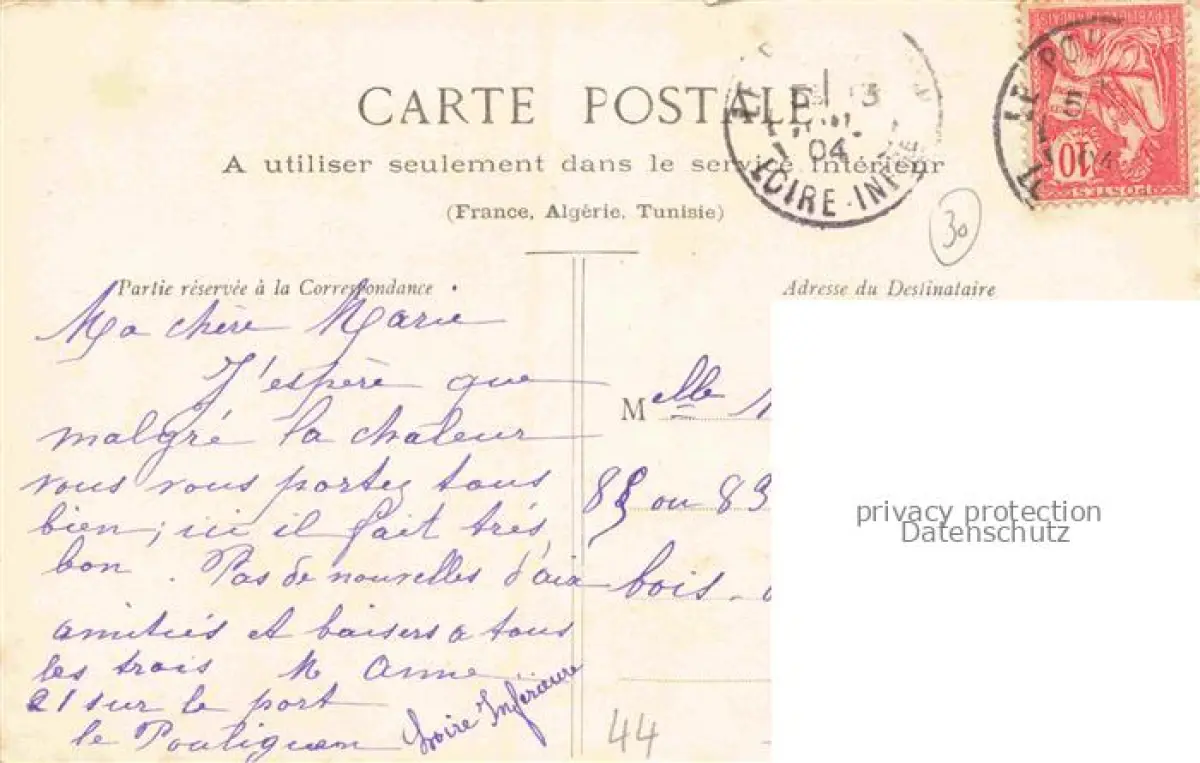 CARTE POSTALE
A utiliser seulement dans le service intérieur
(France, Algérie, Tunisie)
04
LOIRE-INF
LE POU
04
10
POSTES
30
Partie réservée à la Correspondance
Ma chère Marie
J'espère que
malgré la chaleur
vous vous portez tous
bien; ici il fait très
bon. Pas de nouvelles d'aix
amitiés et baisers a tous
les trois M Anne
21 sur le port
le Pouliguen Loire Inférieure
Adresse du Destinataire
Melle
85 ou 83
bois
44
privacy protection
Datenschutz